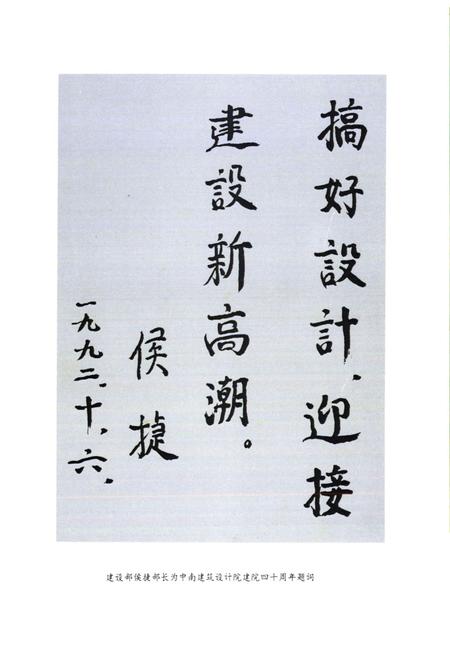 搞好設計,迎接
建設新高潮。
侯捷
一九九二、十、六、
建设部侯捷部长为中南建筑设计院建院四十周年题词